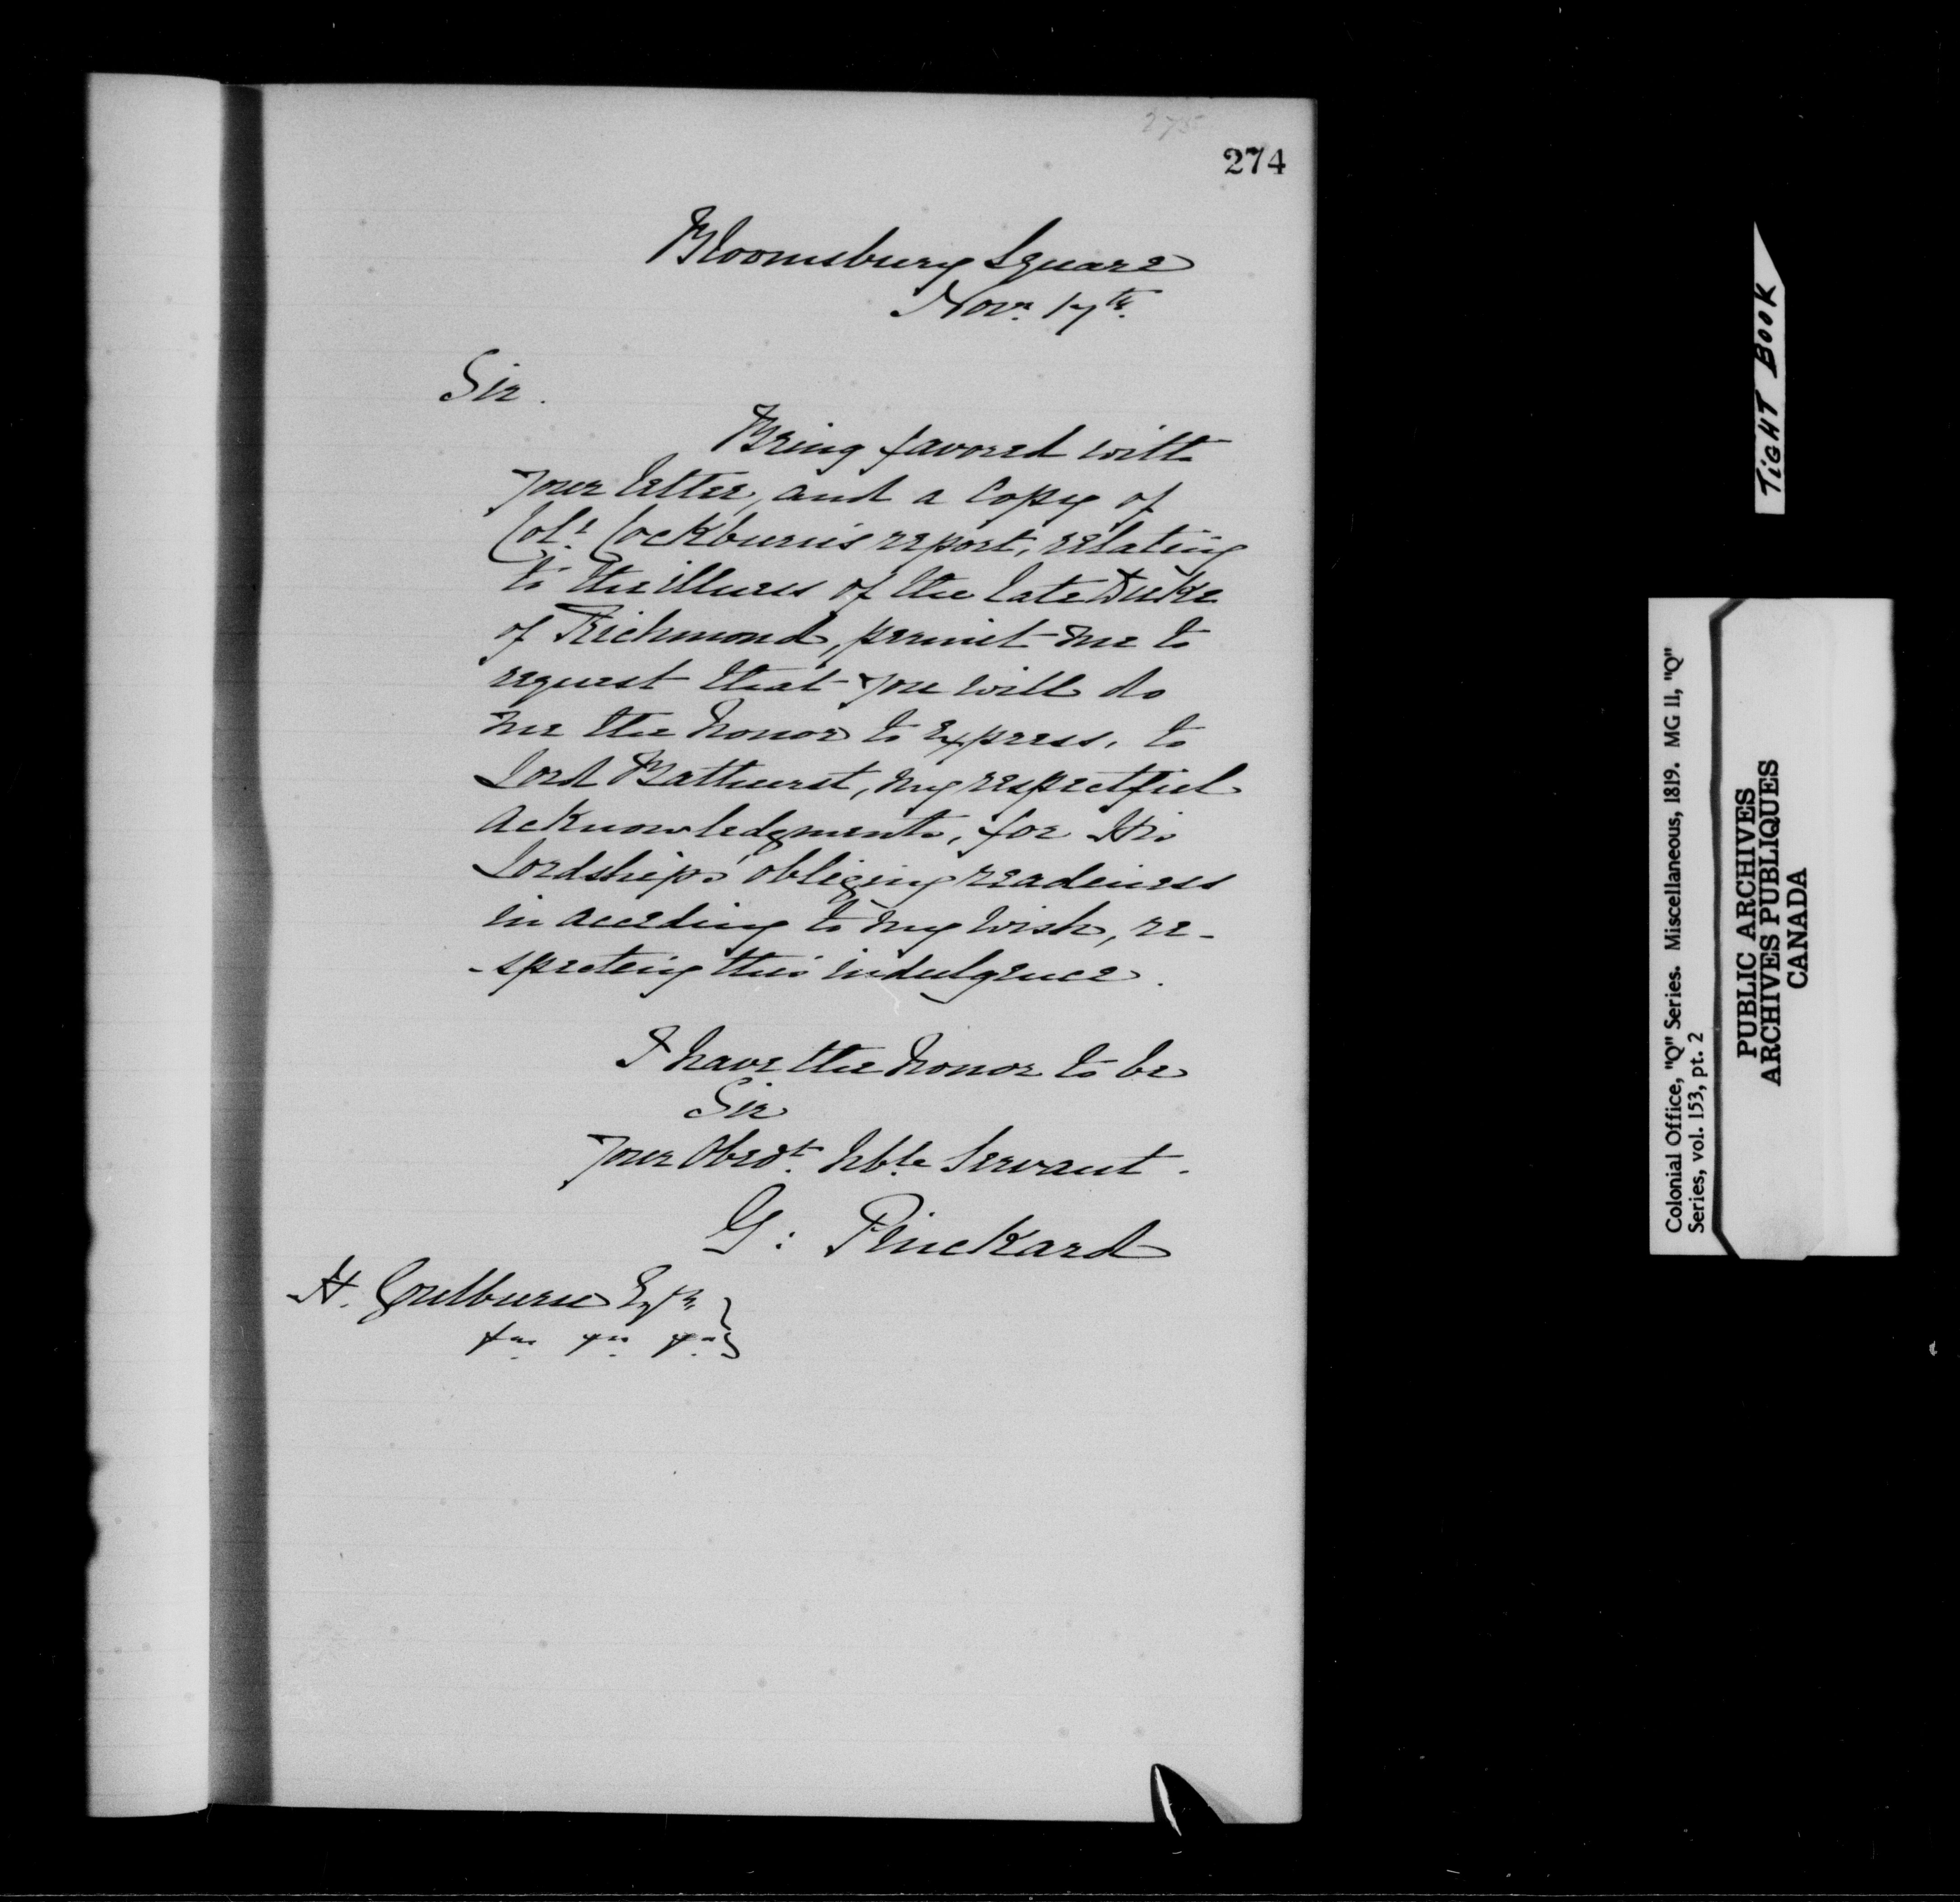 275
274
Bloomsbury Square
Novr. 17th.
Sir.
Being favored with
your letter, and a copy of
Colt. Cockburn's report, relating
to the illness of the late Duke
of Richmond, permit me to
request that you will do
me the honor to express, to
Lord Bathurst, my respectful
acknowledgments, for His
Lordship's obliging readiness
in acceding to my wish, re-
-specting this indulgence.
I have the honor to be
Sir
Your Obedt. hble Servant.
G: Pinckard
H. Goulburn Esqr.
TIGHT BOOK
Colonial Office, "Q" Series. Miscellaneous, 1819. MG 11, "Q"
Series, vol. 153, pt. 2
PUBLIC ARCHIVES
ARCHIVES PUBLIQUES
CANADA